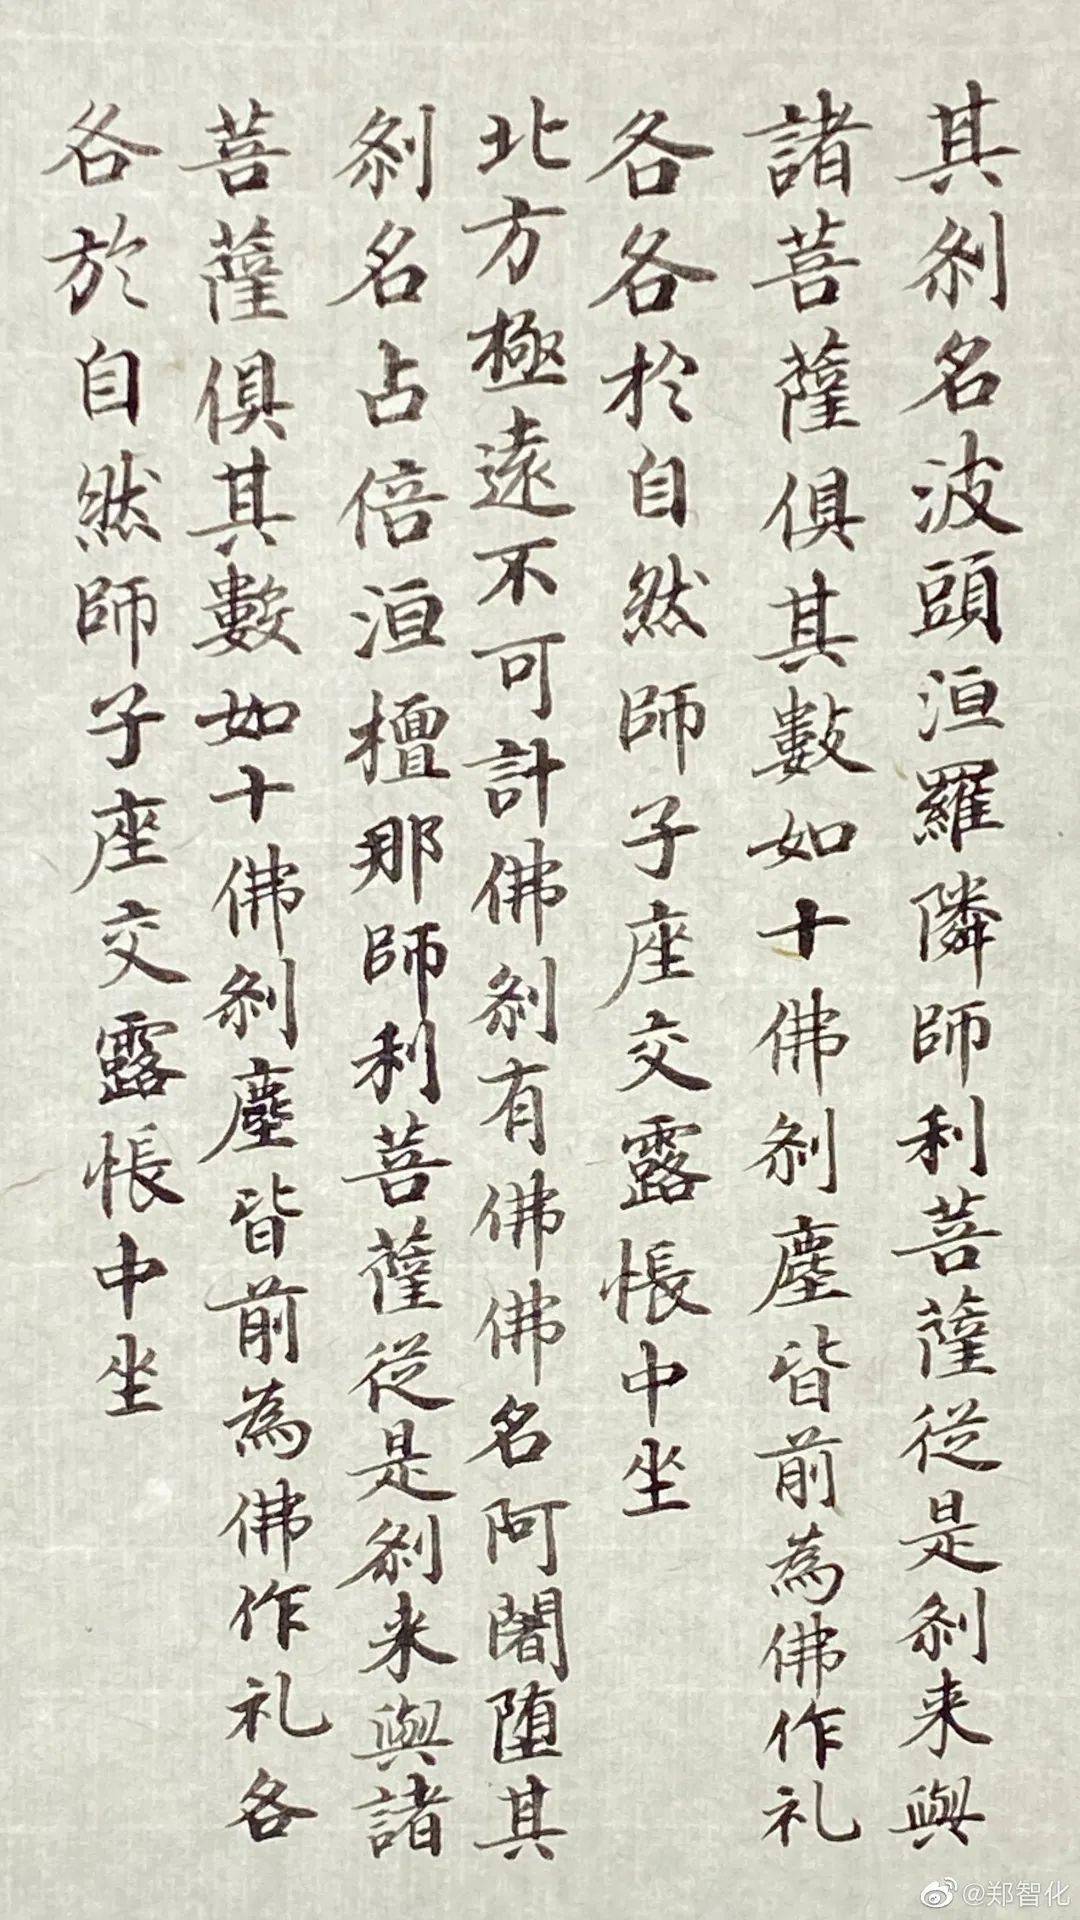 其刹名波頭洹羅隣師利菩薩從是刹来與
諸菩薩俱其數如十佛刹塵皆前為佛作礼
各各於自然師子座交露帳中坐
北方極遠不可計佛刹有佛佛名阿闍堕其
刹名占倍洹檀那師利菩薩從是刹来與諸
菩薩俱其數如十佛刹塵皆前為佛作礼各
各於自然師子座交露帳中坐
@郑智化